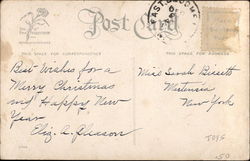 Post Card
THIS SPACE FOR CORRESPONDENCE
THIS SPACE FOR ADDRESS
Best Wishes for a
Merry Christmas
and Happy New
Year
Eliz. A. Gleason
Miss Sarah Bassett
Mertensia
New York